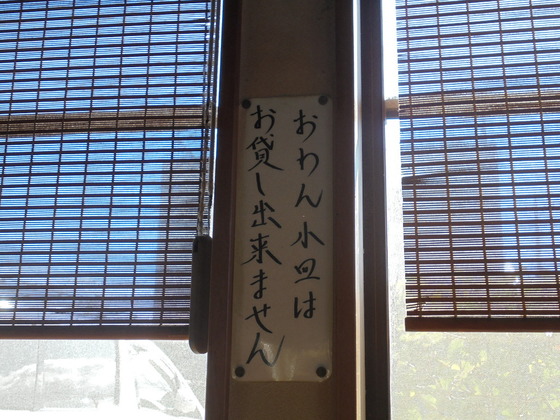 おわん小皿は
お貸し出来ません